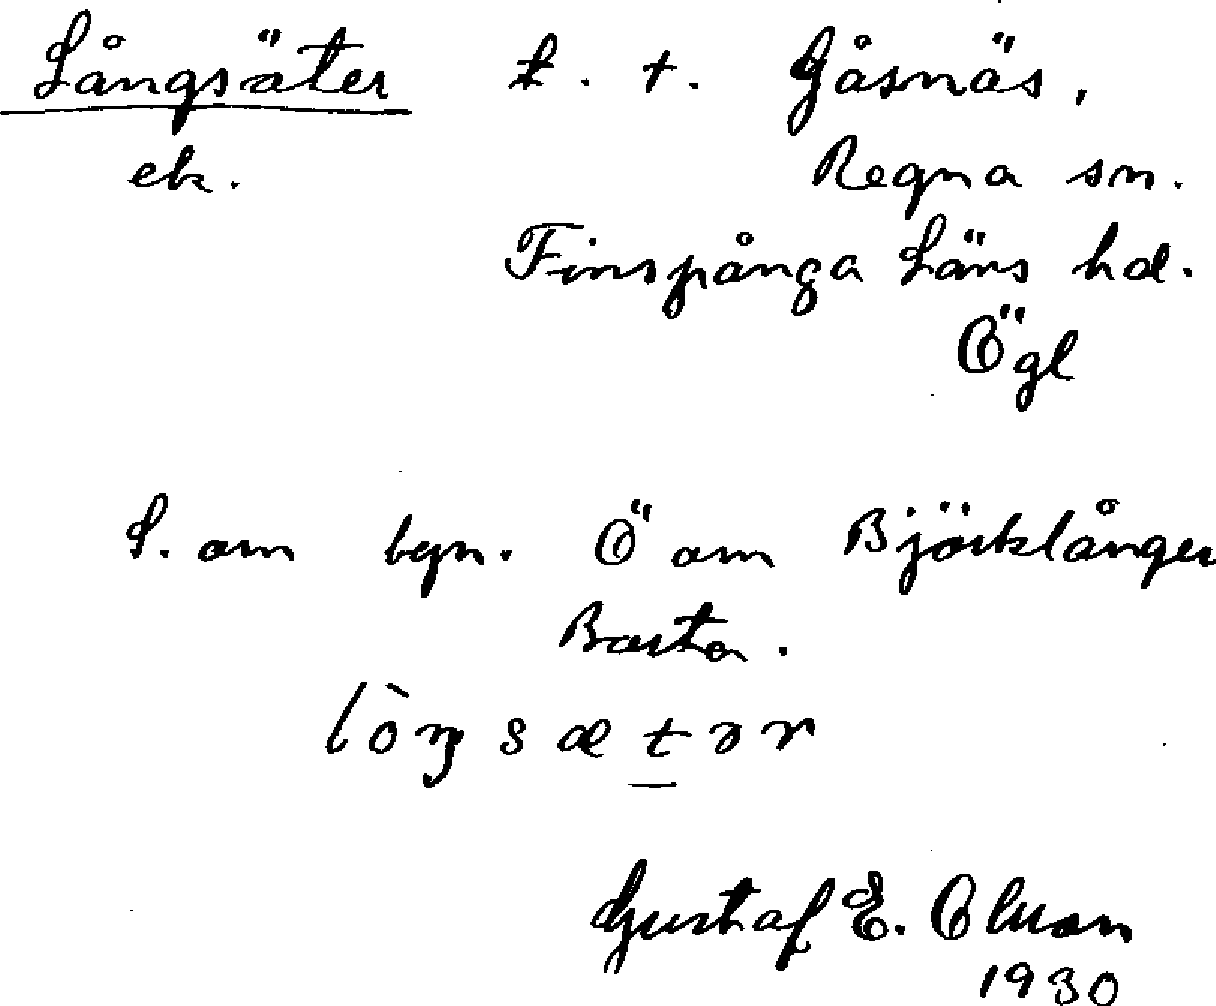 Långsäter t. t. Gåsnäs,
ek. Regna sn.
Finspånga Läns hd.
Ögl
S. om byn. Ö om Björklånger
Barta.
lòŋsætər
Gustaf E. Olsson
1930